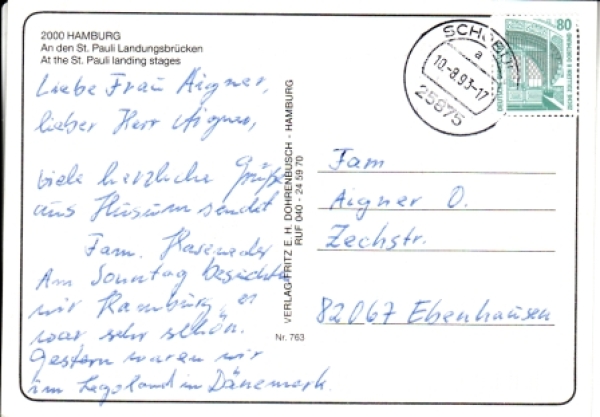 2000 HAMBURG
An den St. Pauli Landungsbrücken
At the St. Pauli landing stages
Liebe Frau Aigner,
lieber Herr Aigner,
viele herzliche Grüße
aus Husum sendet
Fam.
Am Sonntag besichten
wir Hamburg, es
war sehr schön.
Gestern waren wir
im Legoland in Dänemark.
VERLAG FRITZ E. H. DOHRENBUSCH - HAMBURG
RUF 040 - 24 59 70
Nr. 763
a
10.-8.93-17
25875
80
Fam
Aigner O.
Zechstr.
82067 Ebenhausen